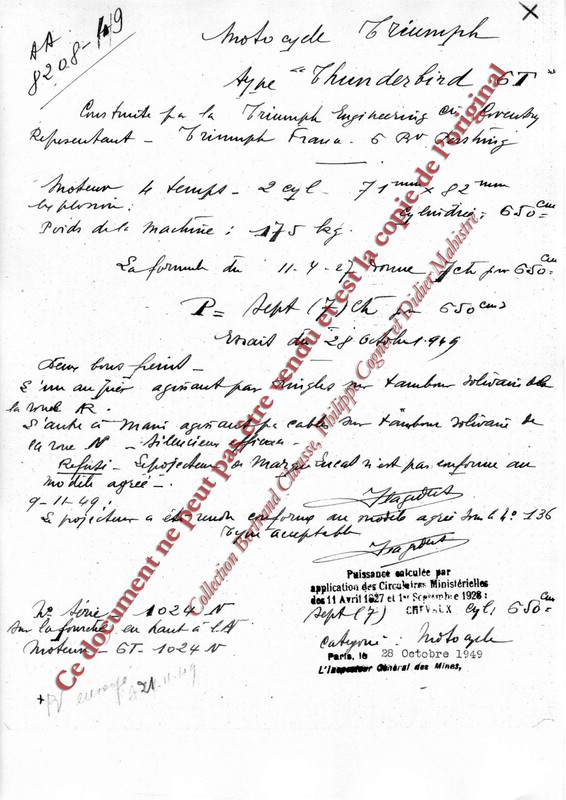 AA
8208-49
Motocycle Triumph
type "Thunderbird 6T"
Construite par la Triumph Engineering Co Coventry
Représentant - Triumph France. 6 Bd Pershing
Moteur 4 temps - 2 cyl. 71 mm x 82 mm
explosion : Cylindrée : 650 cm
Poids de la machine : 175 kg.
La formule du 11-4-27 donne 7ch pr 650 cm
P = Sept (7) Ch pr 650 cm3
Essait du 28 Octobre 1949
Deux bons freins -
L'un au pied agissant par tringles sur tambour solidaire de
la roue AR.
L'autre à main agissant pr cable sur tambour solidaire de
la roue AV - Silencieux efficace -
Refusé - Le projecteur de Marque Lucas n'est pas conforme au
modèle agréé -
9-11-49 :
Le projecteur a été rendu conforme au modèle agréé sous le N° 136
Type acceptable
Puissance calculée par
application des Circulaires Ministérielles
des 11 Avril 1927 et 1er Septembre 1928 :
Sept (7) CHEVAUX Cyl; 650 cm
Catégorie : Motocycle
Paris, le 28 Octobre 1949
L'Inspecteur Général des Mines,
N° Série - 1024 N
Sur la fourche en haut à l'AV
Moteur - 6T-1024 N
+ PV 21.11.49
Ce document ne peut pas être vendu et est la copie de l'original
Collection Bertrand Clausse, Philippe Cognet et Didier Mabistre